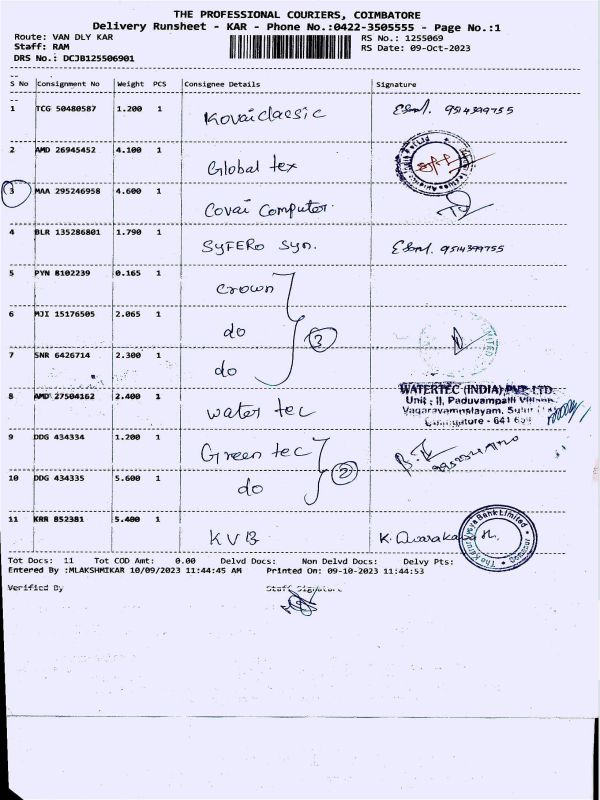 THE PROFESSIONAL COURIERS, COIMBATORE
Delivery Runsheet - KAR - Phone No.:0422-3505555 - Page No.:1
Route: VAN DLY KAR RS No.: 1255069
Staff: RAM RS Date: 09-Oct-2023
DRS No.: DCJB125506901
S No Consignment No Weight PCS Consignee Details Signature
1 TCG 50480587 1.200 1 Kovaiclassic 9514399755
2 AMD 26945452 4.100 1 Global tex
3 MAA 295246958 4.600 1 Covai Computer.
4 BLR 135286801 1.790 1 SYFERO Syn. 9514399755
5 PYN 8102239 0.165 1 Crown
6 MJI 15176505 2.065 1 do 3
7 SNR 6426714 2.300 1 do
8 AMD 27504162 2.400 1 water tec
WATERTEC (INDIA) PVT. LTD.
Unit : II, Paduvampalli Village,
Coimbatore - 641 659
9 DDG 434334 1.200 1 Green tec
10 DDG 434335 5.600 1 do 2
11 KRR 852381 5.400 1 KVB K. Dwaraka
The Karur Vysya Bank Limited
Tot Docs: 11 Tot COD Amt: 0.00 Delvd Docs: Non Delvd Docs: Delvy Pts:
Entered By :MLAKSHMIKAR 10/09/2023 11:44:45 AM Printed On: 09-10-2023 11:44:53
Verified By Staff Signature